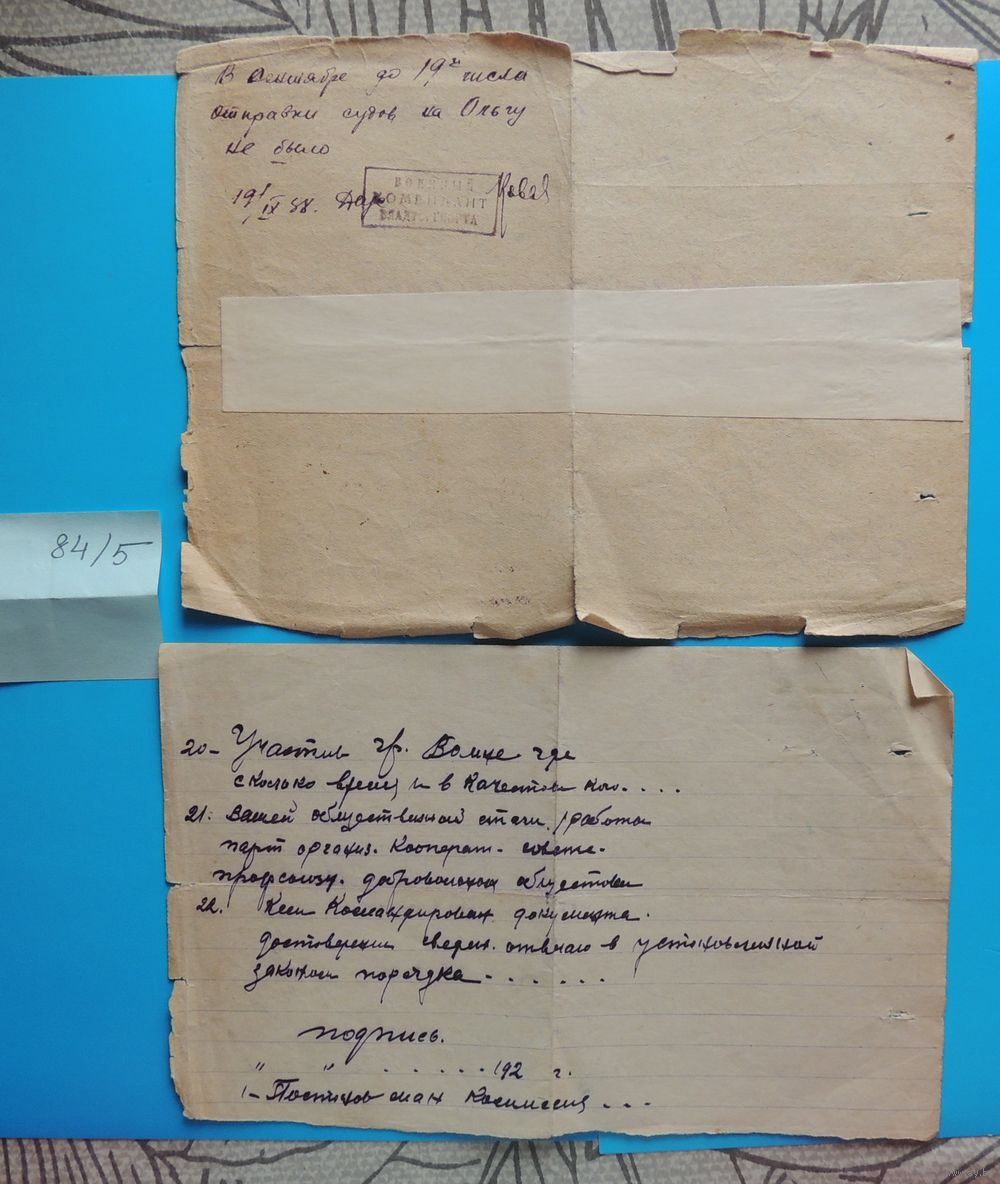 В сентябре до 19го числа
отправки судов на Ольгу
не было
19/IX 38.
ВОЕННЫЙ
КОМЕНДАНТ
84/5
20- Участие гр. Войне где
сколько время и в качестве кого. . . .
21. вашей общественной стаж. работа
парт организ. Кооперат. совете.
профсоюзу. добровольном обществом
22. Кем Командирован документа.
достоверении сверен. отвечаю в установленной
законом порядка . . . . . .
подпись.
" " . . . . . . 192 г.
1- Постанов ман Комиссия . . .